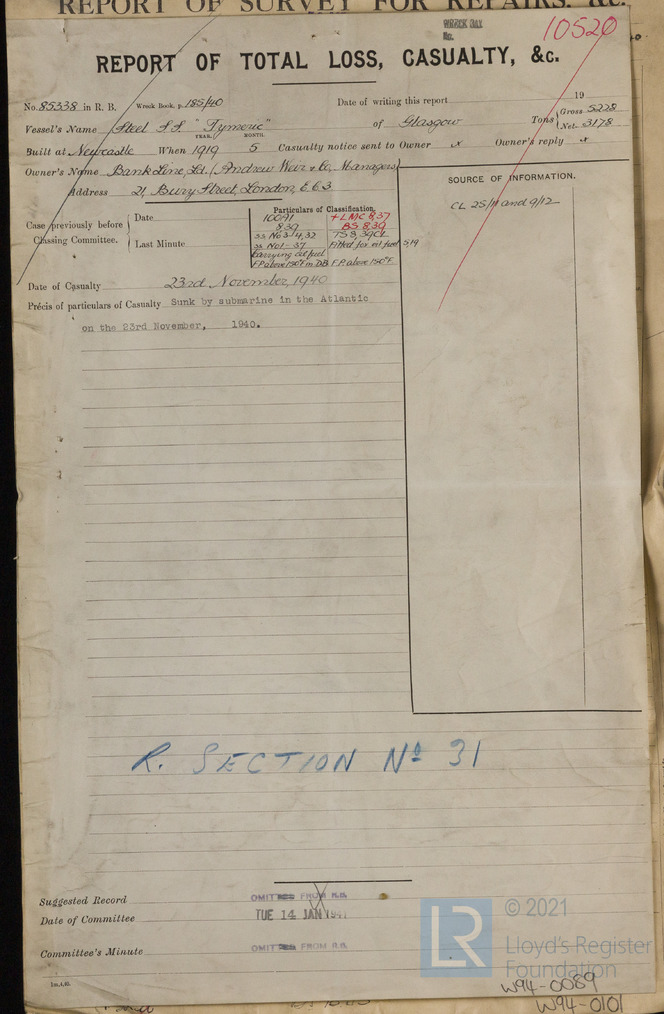 REPORT OF SURVEY FOR REPAIRS, &c.
WRECK BOX
No.
10520
REPORT OF TOTAL LOSS, CASUALTY, &c.
No. 85338 in R. B. Wreck Book, p. 185/40 Date of writing this report 19
Vessel's Name Steel S.S. "Tymeric" of Glasgow Tons { Gross 5228
Net 3178
YEAR. MONTH.
Built at Newcastle When 1919 5 Casualty notice sent to Owner x Owner's reply x
Owner's Name Bank Line, Ld. (Andrew Weir & Co, Managers)
Address 21, Bury Street, London, E.C.3
SOURCE OF INFORMATION.
CL 25/11 and 9/12
Case previously before Classing Committee. { Date
Last Minute
Particulars of Classification.
100A1 + LMC 8,37
8,39 BS 8,39
ss No 3-4,32 TS 8,39CL
ss No 1-37 Fitted for oil fuel 5,19
Carrying oil fuel
F.P. above 150°F in DB F.P. above 150°F
Date of Casualty 23rd November, 1940
Précis of particulars of Casualty Sunk by submarine in the Atlantic
on the 23rd November, 1940.
R. SECTION No 31
Suggested Record OMITTED FROM R.B.
Date of Committee TUE 14 JAN 1941
Committee's Minute OMITTED FROM R.B.
LR
© 2021
Lloyd's Register
Foundation
W94-0089
W94-0101